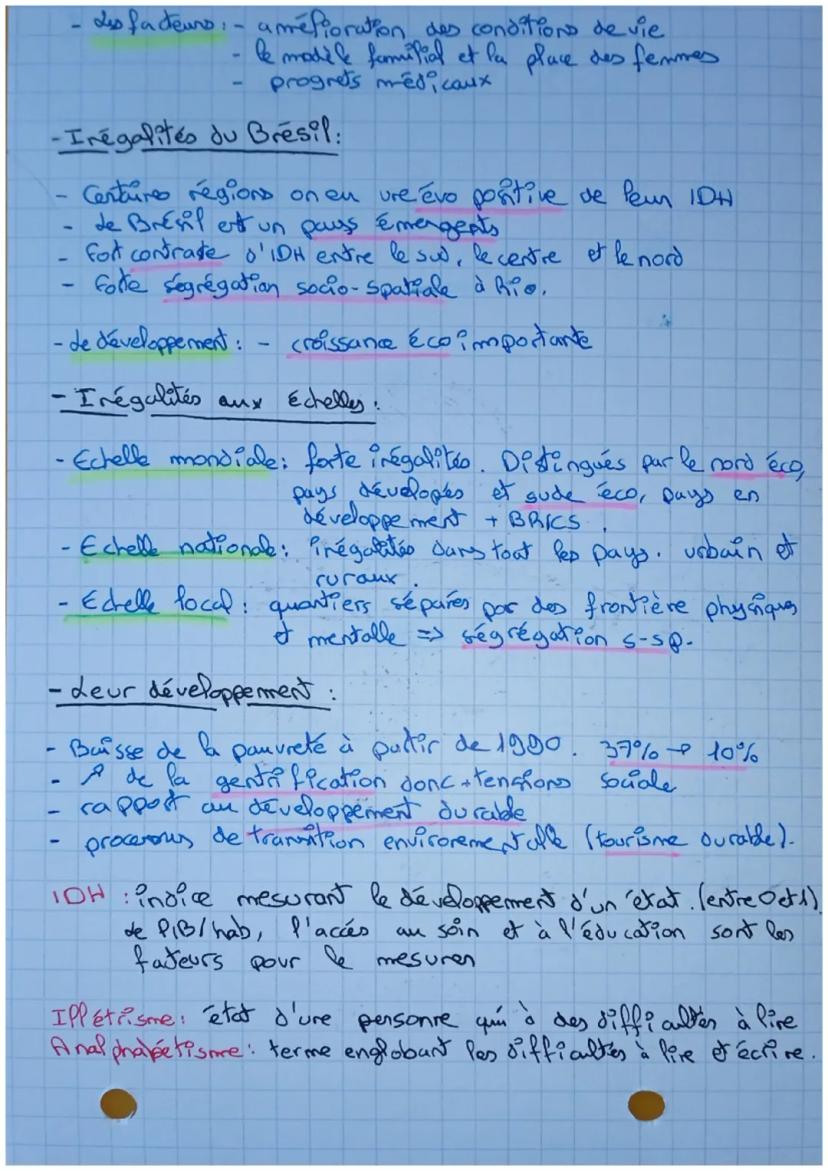 - Les facteurs : - amélioration des conditions de vie
- le modèle familial et la place des femmes
- progrets médicaux
- Inégalités du Brésil :
- Certaines régions on eu une évo positive de leur IDH
- Le Brésil est un pays émergents
- fort contraste d'IDH entre le sud, le centre et le nord
- forte ségrégation socio-spatiale à Rio.
- Le développement : - croissance éco importante
- Inégalités aux échelles :
- Echelle mondiale : forte inégalités. Distingués par le nord éco,
pays dévelopés et sude éco, pays en
développement + BRICS.
- Echelle nationale : inégalités dans tout les pays. urbain et
ruraux.
- Echelle local : quartiers séparés par des frontière physiques
et mentalle => ségrégation s-sp.
- Leur développement :
- Baisse de la pauvreté à partir de 1990. 37% → 10%
- ↗ de la gentrification donc + tensions sociale
- rapport au développement durable
- de transition environementalle (tourisme durable).
IDH : indice mesurant le développement d'un état. (entre 0 et 1)
Le PIB/hab, l'accés au soin et à l'éducation sont les
facteurs pour le mesurer
Illétrisme : état d'une personne qui à des difficultés à lire
Analphabétisme : terme englobant les difficultés à lire et écrire.